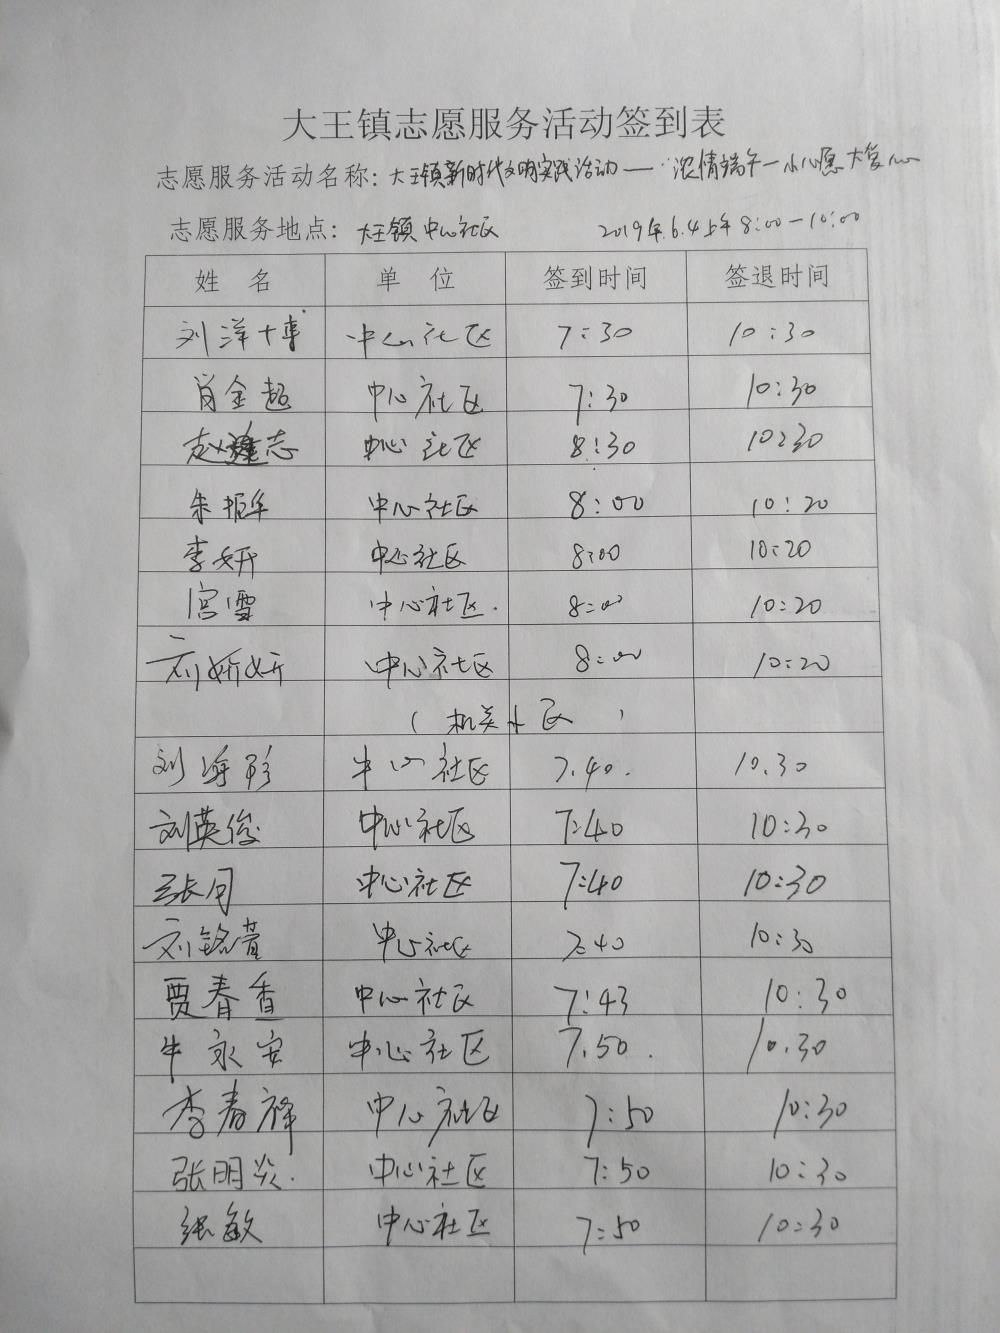 大王镇志愿服务活动签到表
志愿服务活动名称：大王镇新时代文明实践活动——浓情端午 小心愿大爱心
志愿服务地点：大王镇中心社区 2019年.6.4上午8:00-10:00
姓 名 单 位 签到时间 签退时间
刘洋 中心社区 7:30 10:30
肖金超 中心社区 7:30 10:30
赵 志 中心社区 8:30 10:30
朱振华 中心社区 8:00 10:20
李妍 中心社区 8:00 10:20
宫雪 中心社区. 8:00 10:20
刘娇妍 中心社区 8:00 10:20
（机关小区）
刘海珍 中心社区 7.40. 10.30
刘英俊 中心社区 7:40 10:30
张同 中心社区 7:40 10:30
刘铭萱 中心社区 7:40 10:30
贾春香 中心社区 7:43 10:30
牛永安 中心社区 7.50. 10.30
李春祥 中心社区 7:50 10:30
张明炎. 中心社区 7:50 10:30
张敏 中心社区 7:50 10:30